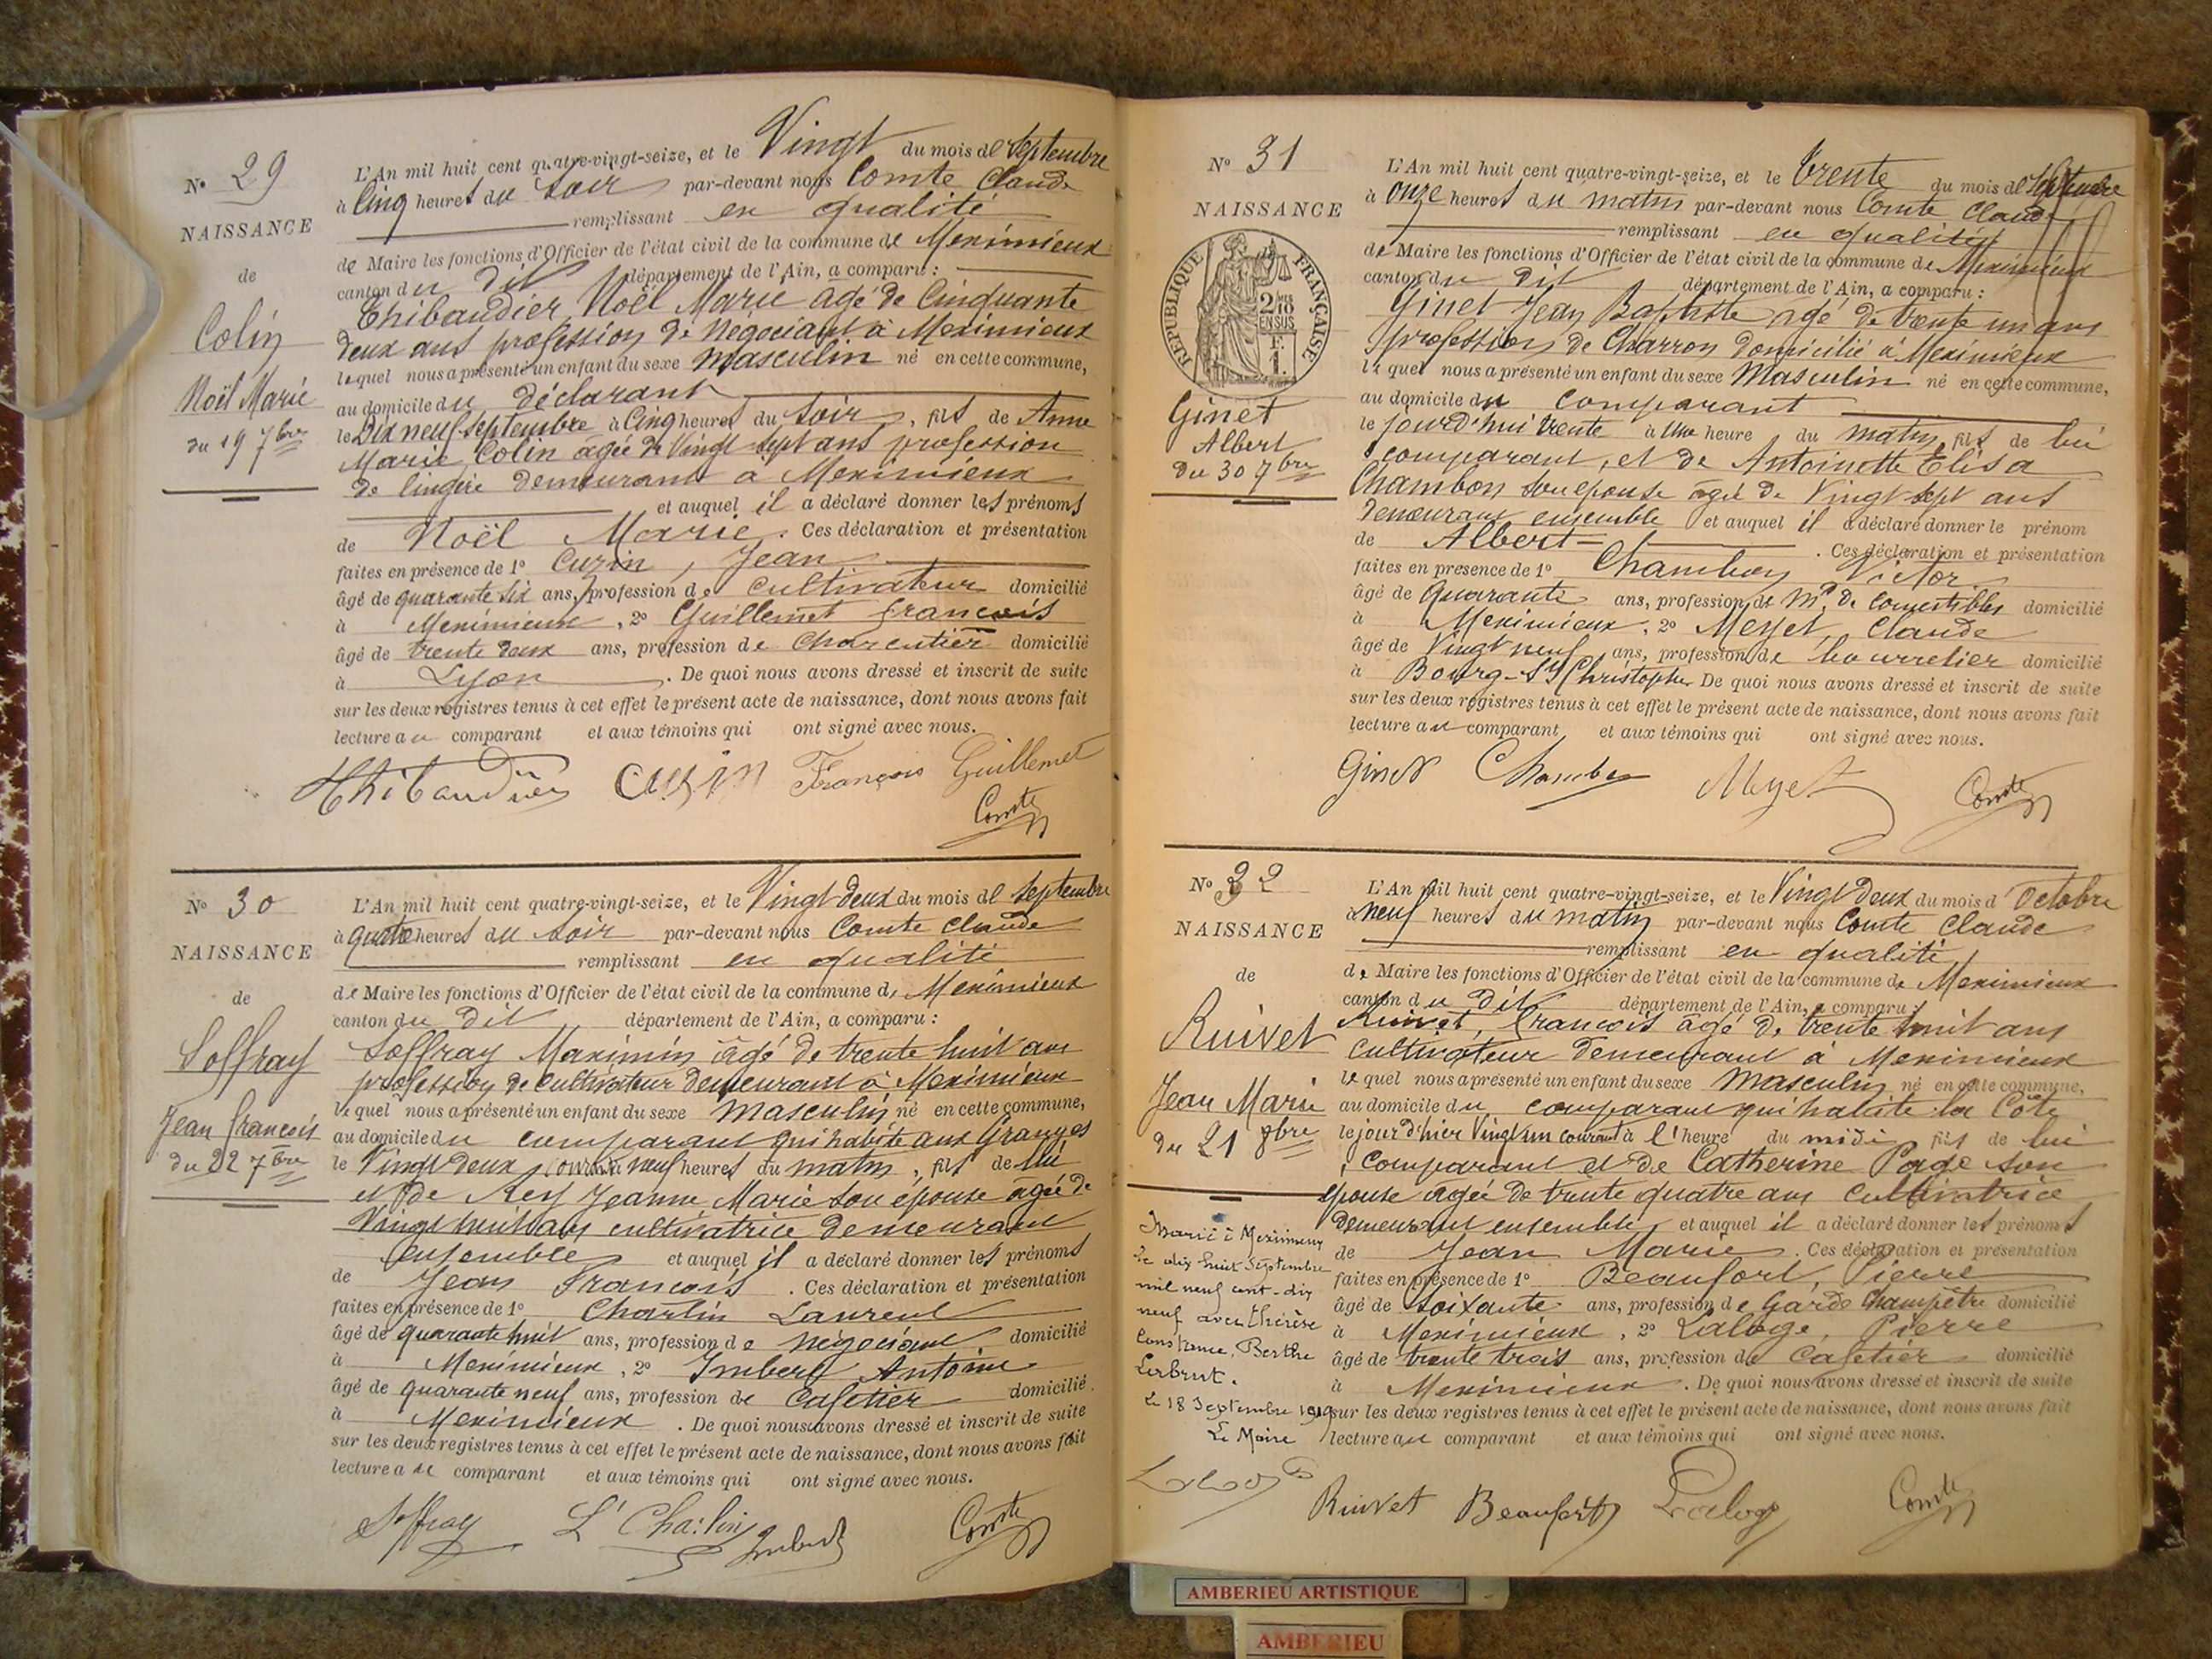 N° 29
NAISSANCE
de
Colin
Noël Marie
du 19 7bre
L'An mil huit cent quatre-vingt-seize, et le Vingt du mois de Septembre
à Cinq heures du soir par-devant nous Comte Claude
remplissant en qualité
de Maire les fonctions d'Officier de l'état civil de la commune de Meximieux
canton du dit département de l'Ain, a comparu :
Thibaudier, Noël Marie âgé de Cinquante
deux ans profession de Négociant à Meximieux
lequel nous a présenté un enfant du sexe masculin né en cette commune,
au domicile du déclarant
le Dix neuf Septembre à Cinq heures du soir, fils de Anne
Marie Colin âgée de Vingt sept ans profession
de lingère demeurant à Meximieux
et auquel il a déclaré donner les prénoms
de Noël Marie. Ces déclaration et présentation
faites en présence de 1° Cuzin, Jean
âgé de quarante six ans, profession de cultivateur domicilié
à Meximieux, 2° Guillemet françois
âgé de trente deux ans, profession de Charcutier domicilié
à Lyon. De quoi nous avons dressé et inscrit de suite
sur les deux registres tenus à cet effet le présent acte de naissance, dont nous avons fait
lecture au comparant et aux témoins qui ont signé avec nous.
Thibaudier Cuzin François Guillemet
Comte
N° 30
NAISSANCE
de
Soffray
Jean françois
du 22 7bre
L'An mil huit cent quatre-vingt-seize, et le Vingt deux du mois de Septembre
à quatre heures du soir par-devant nous Comte Claude
remplissant en qualité
de Maire les fonctions d'Officier de l'état civil de la commune de Meximieux
canton du dit département de l'Ain, a comparu :
Soffray Maximin âgé de trente huit ans
profession de Cultivateur demeurant à Meximieux
lequel nous a présenté un enfant du sexe masculin né en cette commune,
au domicile du comparant qui habite aux Granges
le Vingt deux courant à neuf heures du matin, fils de lui
et de Rey Jeanne Marie son épouse âgée de
Vingt huit ans cultivatrice demeurant
ensemble et auquel il a déclaré donner les prénoms
de Jean François. Ces déclaration et présentation
faites en présence de 1° Charlin Laurent
âgé de quarante huit ans, profession de négociant domicilié
à Meximieux, 2° Imbert Antoine
âgé de quarante neuf ans, profession de Cafetier domicilié
à Meximieux. De quoi nous avons dressé et inscrit de suite
sur les deux registres tenus à cet effet le présent acte de naissance, dont nous avons fait
lecture au comparant et aux témoins qui ont signé avec nous.
Soffray L. Charlin Imbert Comte
N° 31
NAISSANCE
RÉPUBLIQUE FRANÇAISE
2/10 EN SUS
F. 1.
Ginet
Albert
du 30 7bre
L'An mil huit cent quatre-vingt-seize, et le trente du mois de Septembre
à onze heures du matin par-devant nous Comte Claude
remplissant en qualité
de Maire les fonctions d'Officier de l'état civil de la commune de Meximieux
canton du dit département de l'Ain, a comparu :
Ginet Jean Baptiste âgé de trente un ans
profession de Charron domicilié à Meximieux
lequel nous a présenté un enfant du sexe Masculin né en cette commune,
au domicile du comparant
le jourd'hui trente à une heure du matin, fils de lui
comparant, et de Antoinette Elisa
Chambon son épouse âgée de Vingt sept ans
demeurant ensemble et auquel il a déclaré donner le prénom
de Albert. Ces déclaration et présentation
faites en présence de 1° Chambon Victor
âgé de Quarante ans, profession de Md. de Comestibles domicilié
à Meximieux, 2° Meyet, Claude
âgé de Vingt neuf ans, profession de bourrelier domicilié
à Bourg-St Christophe De quoi nous avons dressé et inscrit de suite
sur les deux registres tenus à cet effet le présent acte de naissance, dont nous avons fait
lecture au comparant et aux témoins qui ont signé avec nous.
Ginet Chambon Meyet Comte
N° 32
NAISSANCE
de
Ruivet
Jean Marie
du 21 8bre
Marié à Meximieux
le dix huit Septembre
mil neuf cent dix
neuf avec Thérèse
Constance, Berthe
Lerbrut.
Le 18 Septembre 1919
Le Maire
L'An mil huit cent quatre-vingt-seize, et le Vingt deux du mois d'Octobre
à neuf heures du matin par-devant nous Comte Claude
remplissant en qualité
de Maire les fonctions d'Officier de l'état civil de la commune de Meximieux
canton du dit département de l'Ain, a comparu :
Ruivet, françois âgé de trente huit ans
cultivateur demeurant à Meximieux
lequel nous a présenté un enfant du sexe Masculin né en cette commune,
au domicile du comparant qui habite la Côte
le jour d'hier Vingt un courant à l'heure du midi fils de lui
comparant et de Catherine Page son
épouse âgée de trente quatre ans Cultivatrice
demeurant ensemble, et auquel il a déclaré donner les prénoms
de Jean Marie. Ces déclaration et présentation
faites en présence de 1° Beaufort, Pierre
âgé de Soixante ans, profession de Garde Champêtre domicilié
à Meximieux, 2° Laloge, Pierre
âgé de trente trois ans, profession de Cafetier domicilié
à Meximieux. De quoi nous avons dressé et inscrit de suite
sur les deux registres tenus à cet effet le présent acte de naissance, dont nous avons fait
lecture au comparant et aux témoins qui ont signé avec nous.
Ruivet Beaufort Laloge Comte
AMBERIEU ARTISTIQUE
AMBERIEU